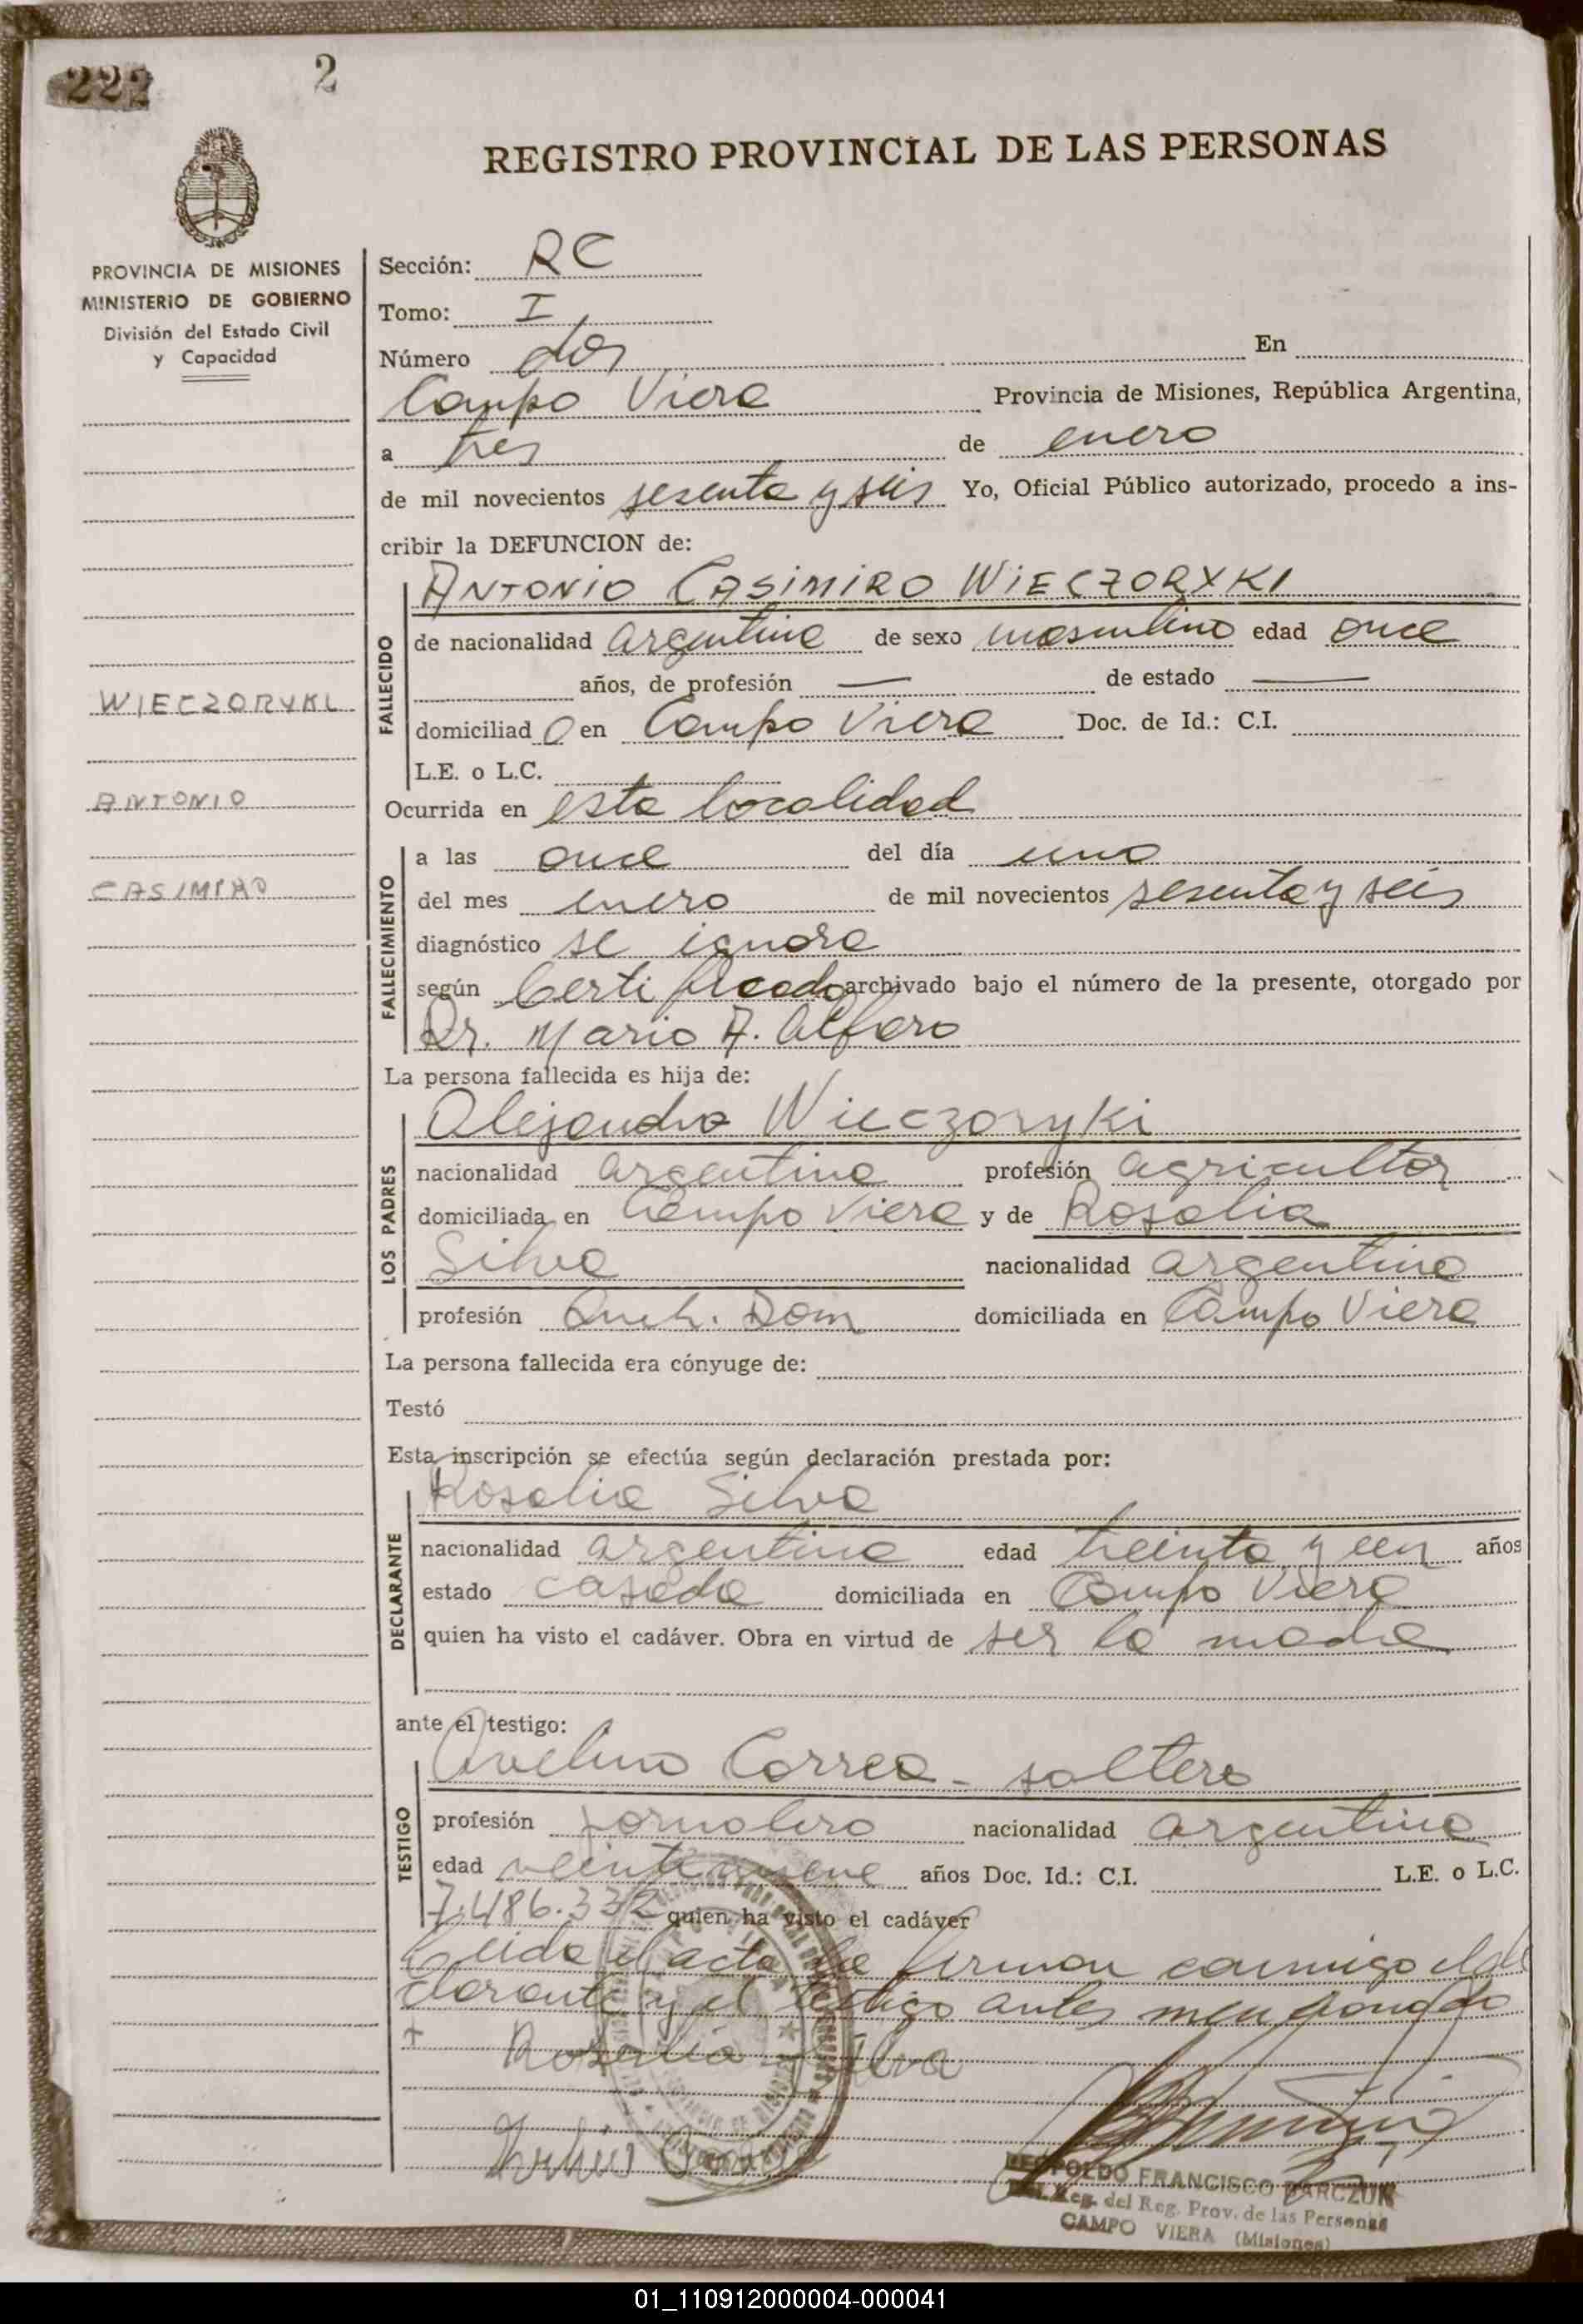 222 2
REGISTRO PROVINCIAL DE LAS PERSONAS
PROVINCIA DE MISIONES
MINISTERIO DE GOBIERNO
División del Estado Civil
y Capacidad
WIECZORYKI
ANTONIO
CASIMIRO
Sección: RC
Tomo: I
Número dos En
Campo Viera Provincia de Misiones, República Argentina,
a tres de enero
de mil novecientos sesenta y seis Yo, Oficial Público autorizado, procedo a ins-
cribir la DEFUNCION de:
FALLECIDO
ANTONIO CASIMIRO WIECZORYKI
de nacionalidad argentina de sexo masculino edad once
años, de profesión — de estado —
domiciliad o en Campo Viera Doc. de Id.: C.I.
L.E. o L.C.
Ocurrida en esta localidad
FALLECIMIENTO
a las once del día uno
del mes enero de mil novecientos sesenta y seis
diagnóstico se ignora
según Certificado archivado bajo el número de la presente, otorgado por
Dr. Mario A. Alfaro
La persona fallecida es hija de:
LOS PADRES
Alejandro Wieczoryki
nacionalidad argentina profesión agricultor
domiciliada en Campo Viera y de Rosalia
Silva nacionalidad argentina
profesión Dom domiciliada en Campo Viera
La persona fallecida era cónyuge de:
Testó
Esta inscripción se efectúa según declaración prestada por:
DECLARANTE
Rosalia Silva
nacionalidad argentina edad treinta y un años
estado casada domiciliada en Campo Viera
quien ha visto el cadáver. Obra en virtud de ser la madre
ante el testigo:
TESTIGO
Avelino Correa - soltero
profesión jornalero nacionalidad argentina
edad veintinueve años Doc. Id.: C.I. L.E. o L.C.
7.486.332 quien ha visto el cadáver
Leida el acta la firman conmigo el de
clarante y el testigo antes mencionado
+ Rosalia Silva
LEOPOLDO FRANCISCO BARCZUK
Reg. del Reg. Prov. de las Personas
CAMPO VIERA (Misiones)
01_110912000004-000041